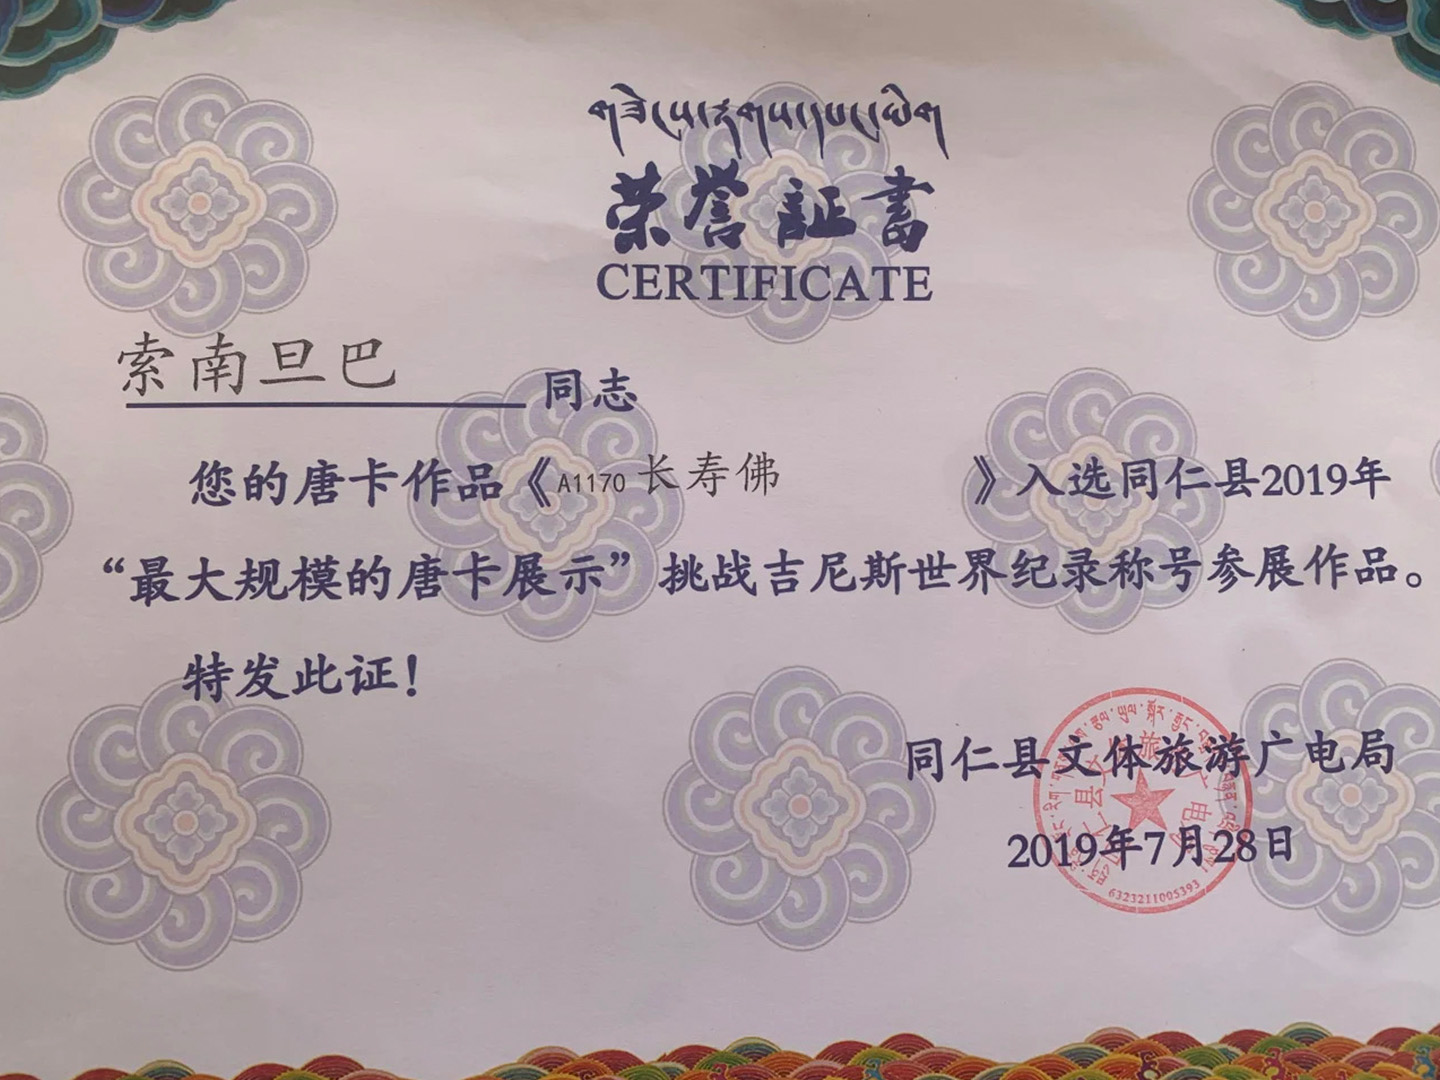 荣誉证書
CERTIFICATE
索南旦巴 同志
您的唐卡作品《A1170 长寿佛 》入选同仁县2019年
“最大规模的唐卡展示”挑战吉尼斯世界纪录称号参展作品。
特发此证!
同仁县文体旅游广电局
2019年7月28日
6323211005393